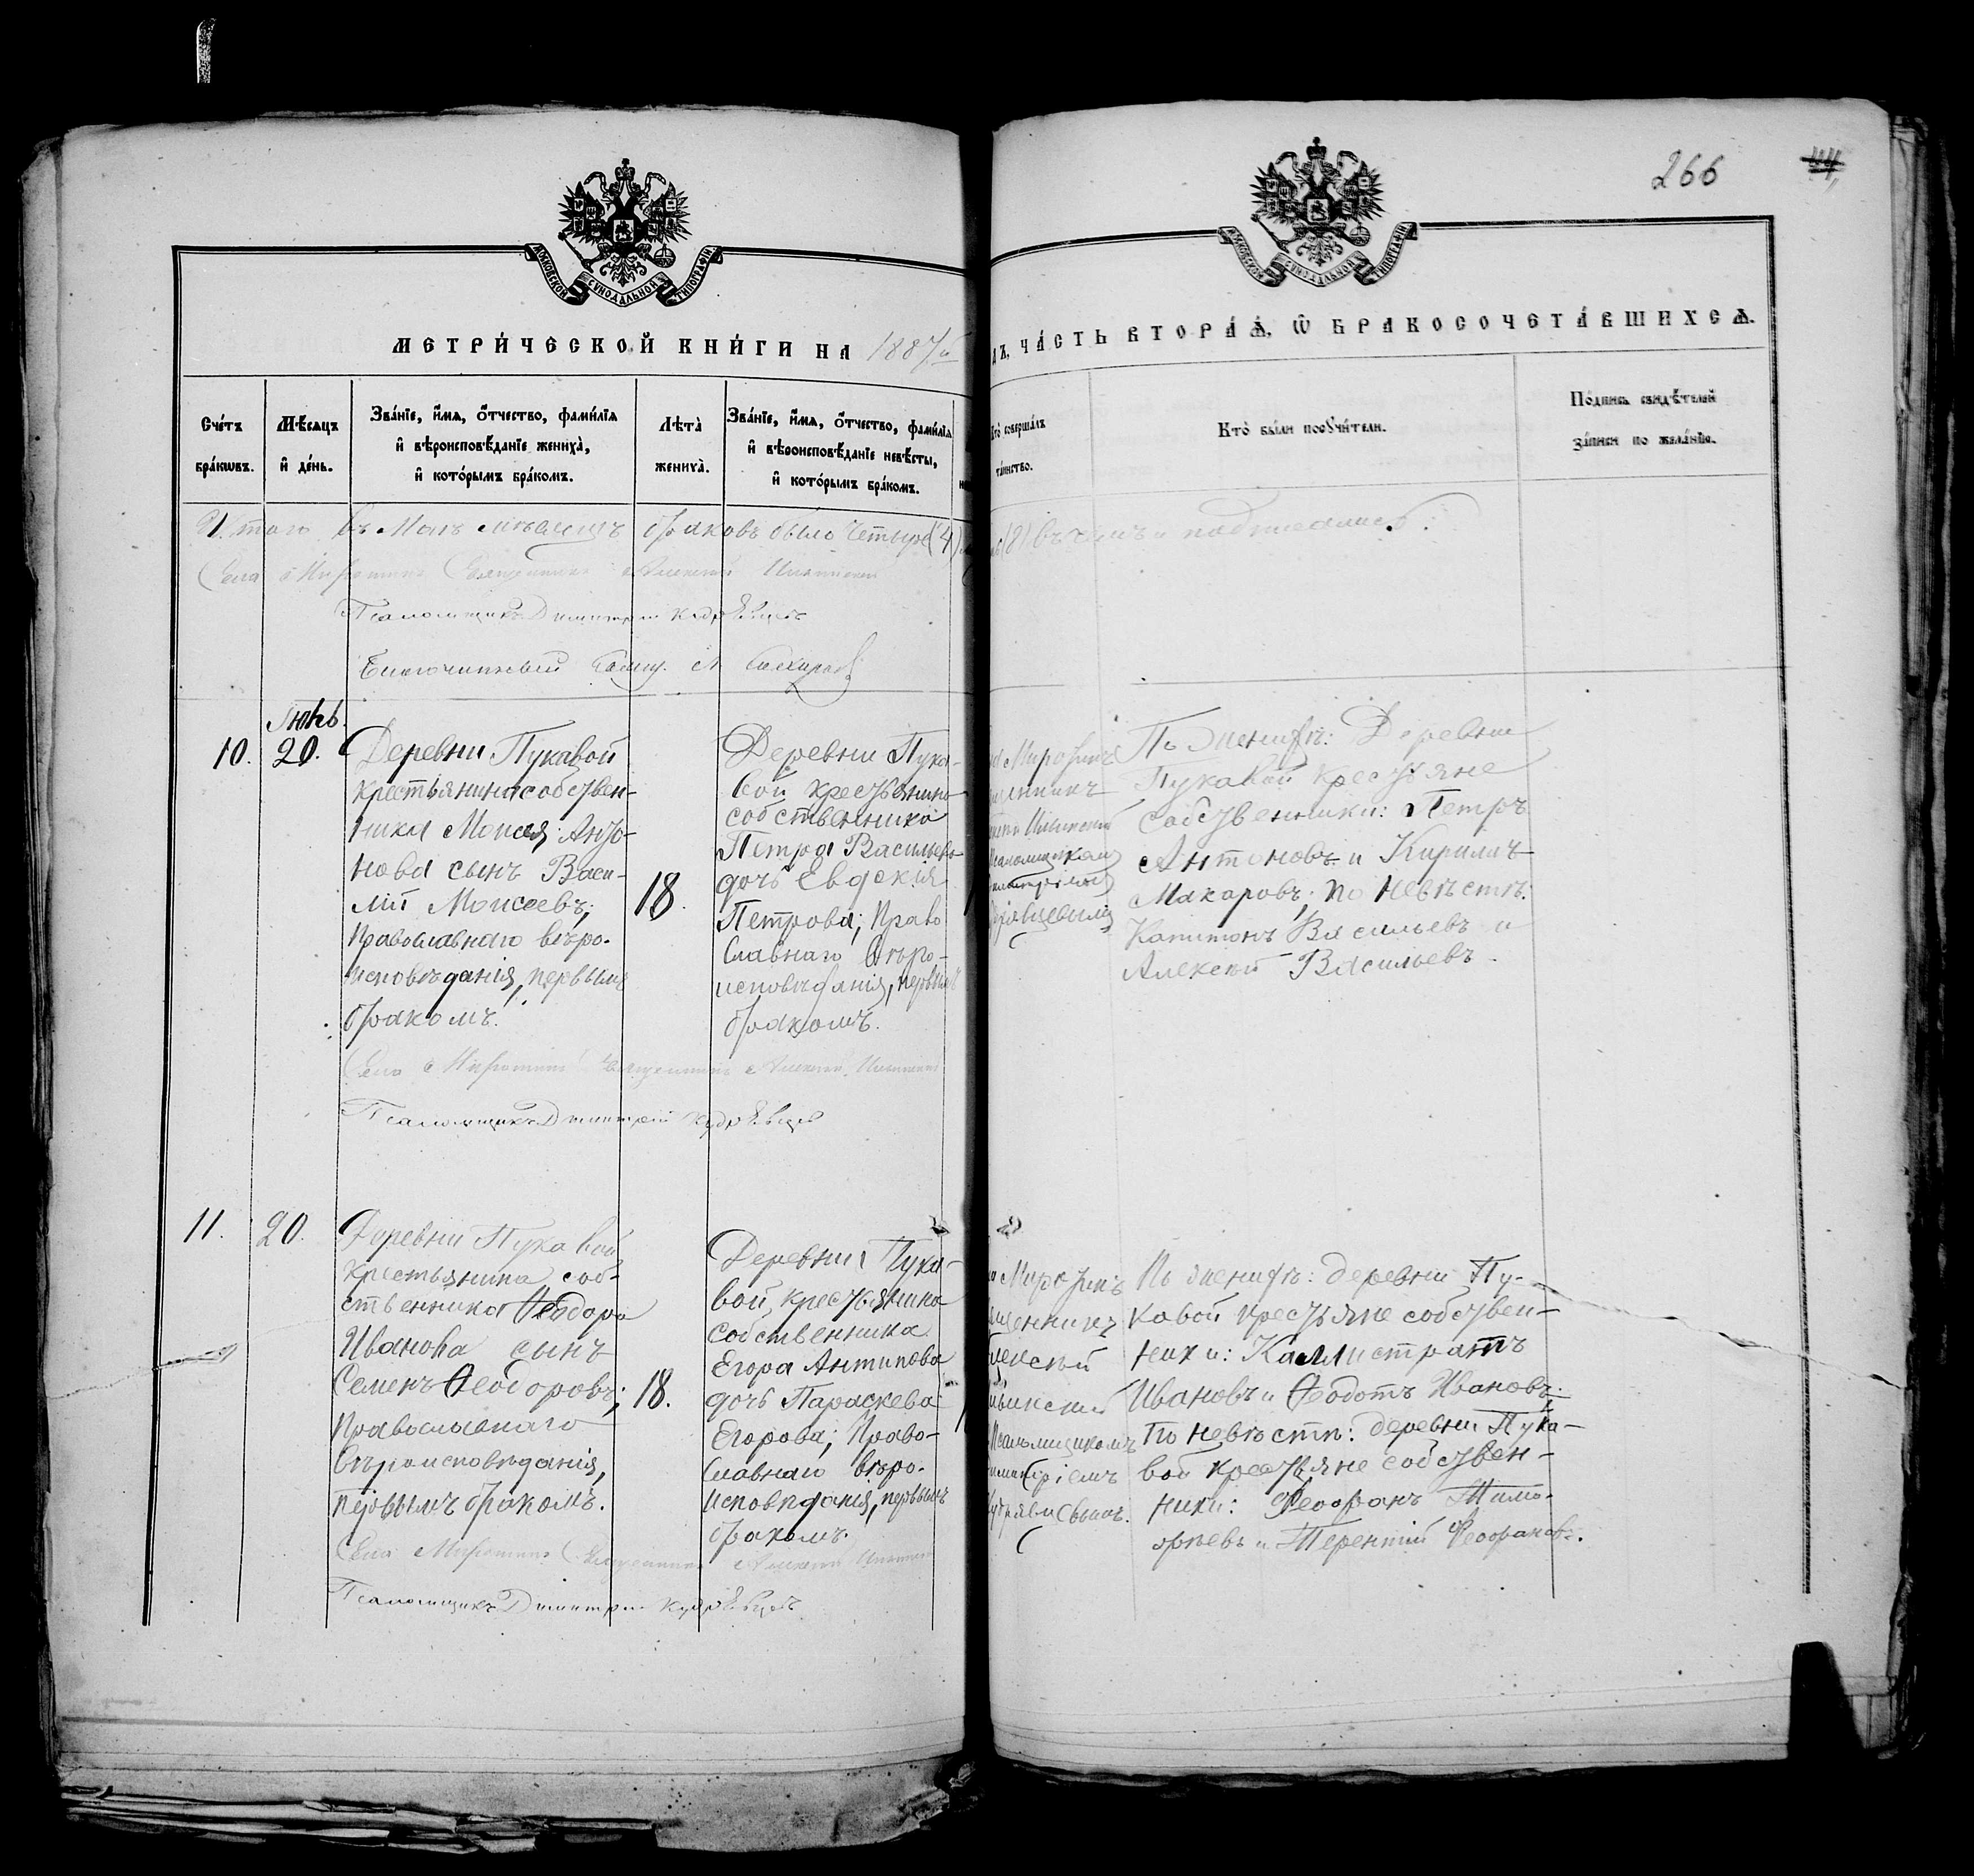 266
МОСКОВСКОЙ СѴНОДАЛЬНОЙ ТИПОГРАФІИ
МОСКОВСКОЙ СѴНОДАЛЬНОЙ ТИПОГРАФІИ
МЕТРИ́ЧЕСКОЙ КНИ́ГИ НА 1887й
ДЪ, ЧА́СТЬ ВТОРА́Ѧ, Ѡ БРАКОСОЧЕТА́ВШИХСѦ.
Сче́тъ
бра́кѡвъ.
Мѣ́сѧцъ
и҆ де́нь.
Зва́нїе, и҆́мѧ, ѻ҆́тчество, фами́лїѧ
и҆ вѣроисповѣ́данїе жениха̀,
и҆ кото́рымъ бра́комъ.
Лѣ́та̀
жениха̀.
Зва́нїе, и҆́мѧ, ѻ҆́тчество, фами́лїѧ
и҆ вѣроисповѣ́данїе невѣ́сты,
и҆ кото́рымъ бра́комъ.
Кто̀ соверша́лъ
та́инство.
Кто̀ бы́ли порꙋчи́тели.
По́дпись свидѣ́телей
за́писи по жела́нїю.
Итого въ Маѣ мѣсяцѣ браковъ было четыре (4)
(8) въ чемъ и подписались:
Села Священникъ Алексѣй
Псаломщикъ Димитрій Кудрявцевъ
Благочинный Свящ. А.
Іюнь.
10.
20.
Деревни Пукавой
крестьянина собствен-
ника Моисея Анто-
нова сынъ Васи-
лій Моисеевъ;
Православнаго вѣро-
исповѣданія, первымъ
бракомъ.
18.
Деревни Пука-
вой крестьянина
собственника
Петра Васильева
дочь Евдокія
Петрова; Право
славнаго вѣро-
исповѣданія, первымъ
бракомъ.
Псаломщикомъ
По женихѣ: Деревни
Пукавой крестьяне
собственники: Петръ
Антоновъ и Кирилъ
Макаровъ; по невѣстѣ:
Капитонъ Васильевъ и
Алексѣй Васильевъ.
Села Священникъ Алексѣй
Псаломщикъ Димитрій Кудрявцевъ
11.
20.
Деревни Пукавой
крестьянина соб-
ственника Ѳеодора
Иванова сынъ
Семенъ Ѳеодоровъ;
Православнаго
вѣроисповѣданія,
первымъ бракомъ.
18.
Деревни Пука-
вой, крестьянина
собственника
Егора Антипова
дочь Параскева
Егорова; Право-
славнаго вѣро-
исповѣданія, первымъ
бракомъ.
Псаломщикомъ
По женихѣ: деревни Пу-
кавой крестьяне собствен-
ники: Каллистратъ
Ивановъ и Ѳеодотъ Ивановъ;
По невѣстѣ: деревни Пука-
вой крестьяне собствен-
ники: Ѳеофанъ Тимо-
ѳеевъ и Терентій Ѳеофановъ.
Села Священникъ Алексѣй
Псаломщикъ Димитрій Кудрявцевъ